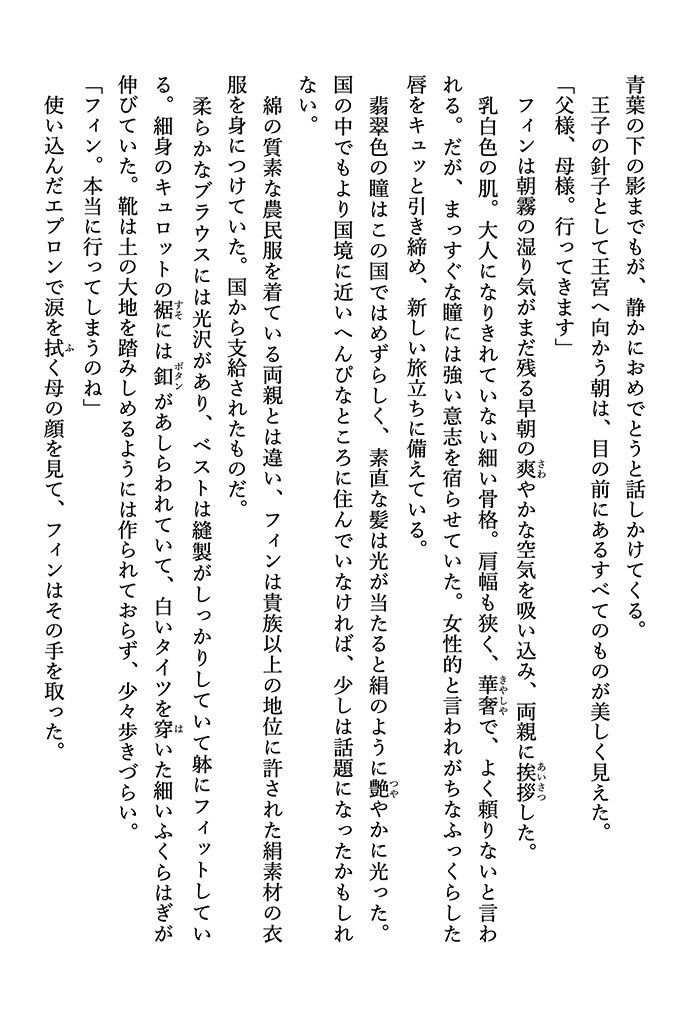 青葉の下の影までもが、静かにおめでとうと話しかけてくる。
王子の針子として王宮へ向かう朝は、目の前にあるすべてのものが美しく見えた。
「父様、母様。行ってきます」
フィンは朝霧の湿り気がまだ残る早朝の爽やかな空気を吸い込み、両親に挨拶した。
乳白色の肌。大人になりきれていない細い骨格。肩幅も狭く、華奢で、よく頼りないと言わ
れる。だが、まっすぐな瞳には強い意志を宿らせていた。女性的と言われがちなふっくらした
唇をキュッと引き締め、新しい旅立ちに備えている。
翡翠色の瞳はこの国ではめずらしく、素直な髪は光が当たると絹のように艶やかに光った。
国の中でもより国境に近いへんぴなところに住んでいなければ、少しは話題になったかもしれ
ない。
綿の質素な農民服を着ている両親とは違い、フィンは貴族以上の地位に許された絹素材の衣
服を身につけていた。国から支給されたものだ。
柔らかなブラウスには光沢があり、ベストは縫製がしっかりしていて躰にフィットしてい
る。細身のキュロットの裾には釦があしらわれていて、白いタイツを穿いた細いふくらはぎが
伸びていた。靴は土の大地を踏みしめるようには作られておらず、少々歩きづらい。
「フィン。本当に行ってしまうのね」
使い込んだエプロンで涙を拭く母の顔を見て、フィンはその手を取った。